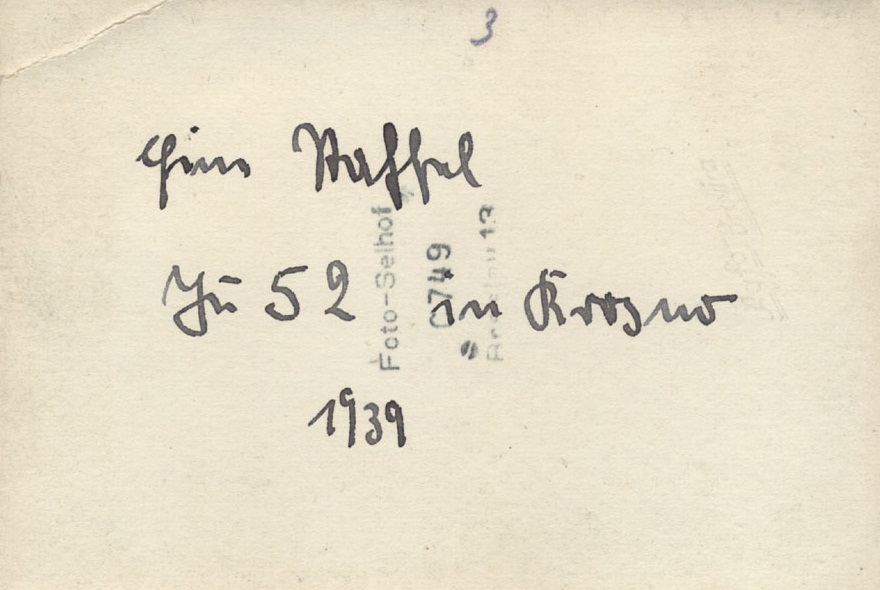 3
Eine Staffel
Ju 52 in Krosno
1939
Foto-Selhof
0749
13